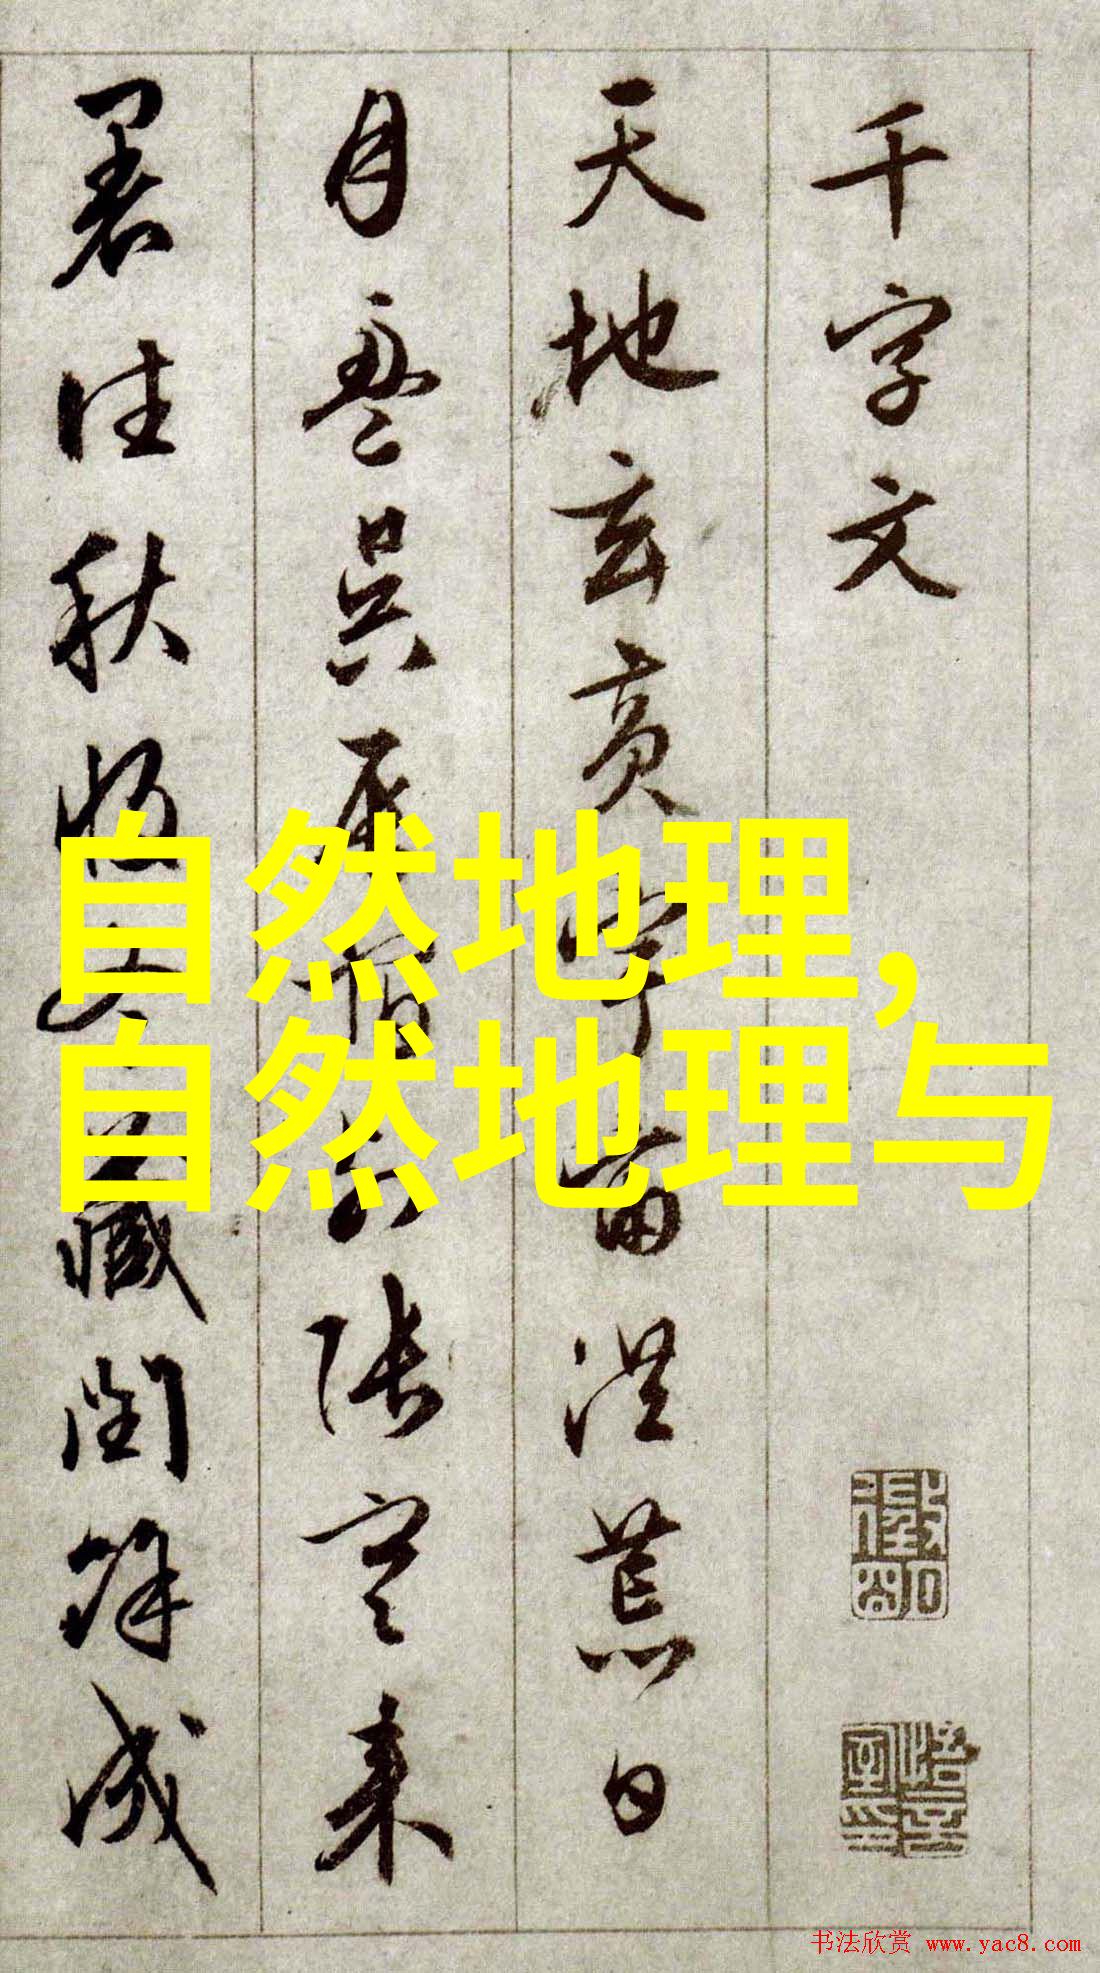 千字文
天地玄黄宇宙洪荒日
月盈昃辰宿列张寒来
暑往秋收冬藏闰余成
自然地理,
自然地理与
书法欣赏 www.yac8.com